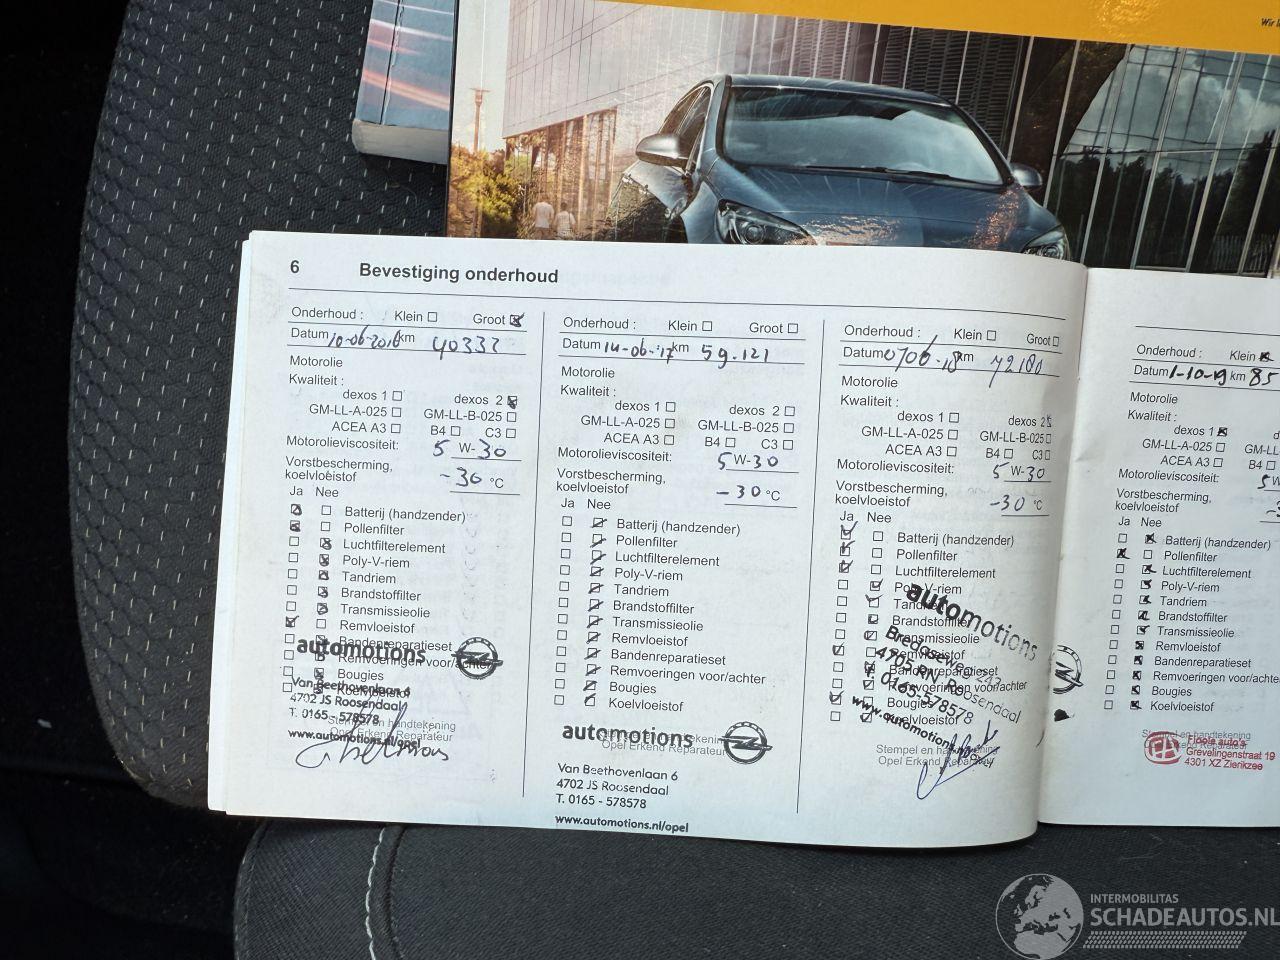 Wir l
6 Bevestiging onderhoud
Onderhoud : Klein Groot
Datum 10-06-2016 km 40332
Motorolie
Kwaliteit :
dexos 1 dexos 2
GM-LL-A-025 GM-LL-B-025
ACEA A3 B4 C3
Motorolieviscositeit: 5 W-30
Vorstbescherming,
koelvloeistof -30 °C
Ja Nee
Batterij (handzender)
Pollenfilter
Luchtfilterelement
Poly-V-riem
Tandriem
Brandstoffilter
Transmissieolie
Remvloeistof
Bandenreparatieset
Remvoeringen voor/achter
Bougies
Koelvloeistof
Stempel en handtekening
Opel Erkend Reparateur
automotions
Van Beethovenlaan 6
4702 JS Roosendaal
T. 0165 - 578578
www.automotions.nl/opel
Onderhoud : Klein Groot
Datum 14-06-'17 km 59.121
Motorolie
Kwaliteit :
dexos 1 dexos 2
GM-LL-A-025 GM-LL-B-025
ACEA A3 B4 C3
Motorolieviscositeit: 5 W-30
Vorstbescherming,
koelvloeistof -30 °C
Ja Nee
Batterij (handzender)
Pollenfilter
Luchtfilterelement
Poly-V-riem
Tandriem
Brandstoffilter
Transmissieolie
Remvloeistof
Bandenreparatieset
Remvoeringen voor/achter
Bougies
Koelvloeistof
Opel Erkend Reparateur
automotions
Van Beethovenlaan 6
4702 JS Roosendaal
T. 0165 - 578578
www.automotions.nl/opel
Onderhoud : Klein Groot
Datum 0706-18 km 72180
Motorolie
Kwaliteit :
dexos 1 dexos 2
GM-LL-A-025 GM-LL-B-025
ACEA A3 B4 C3
Motorolieviscositeit: 5 W-30
Vorstbescherming,
koelvloeistof -30 °C
Ja Nee
Batterij (handzender)
Pollenfilter
Luchtfilterelement
Poly-V-riem
Tandriem
Brandstoffilter
Transmissieolie
Remvloeistof
Bandenreparatieset
Remvoeringen voor/achter
Bougies
Koelvloeistof
Stempel en handtekening
Opel Erkend Reparateur
automotions
Bredaseweg 243
4705 RN Roosendaal
T. 0165-578578
www.automotions.nl
Onderhoud : Klein
Datum 1-10-19 km 85
Motorolie
Kwaliteit :
dexos 1
GM-LL-A-025 GM-LL
ACEA A3 B4
Motorolieviscositeit: 5 W
Vorstbescherming,
koelvloeistof
Ja Nee
Batterij (handzender)
Pollenfilter
Luchtfilterelement
Poly-V-riem
Tandriem
Brandstoffilter
Transmissieolie
Remvloeistof
Bandenreparatieset
Remvoeringen voor/achter
Bougies
Koelvloeistof
Grevelingenstraat 19
4301 XZ Zierikzee
INTERMOBILITAS
SCHADEAUTOS.NL